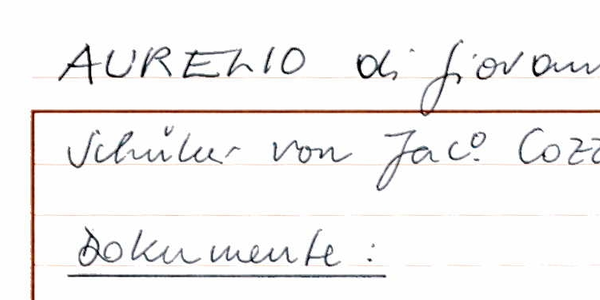 AURELIO di Giovan
Schüler von Jac.º Coz
Dokumente: